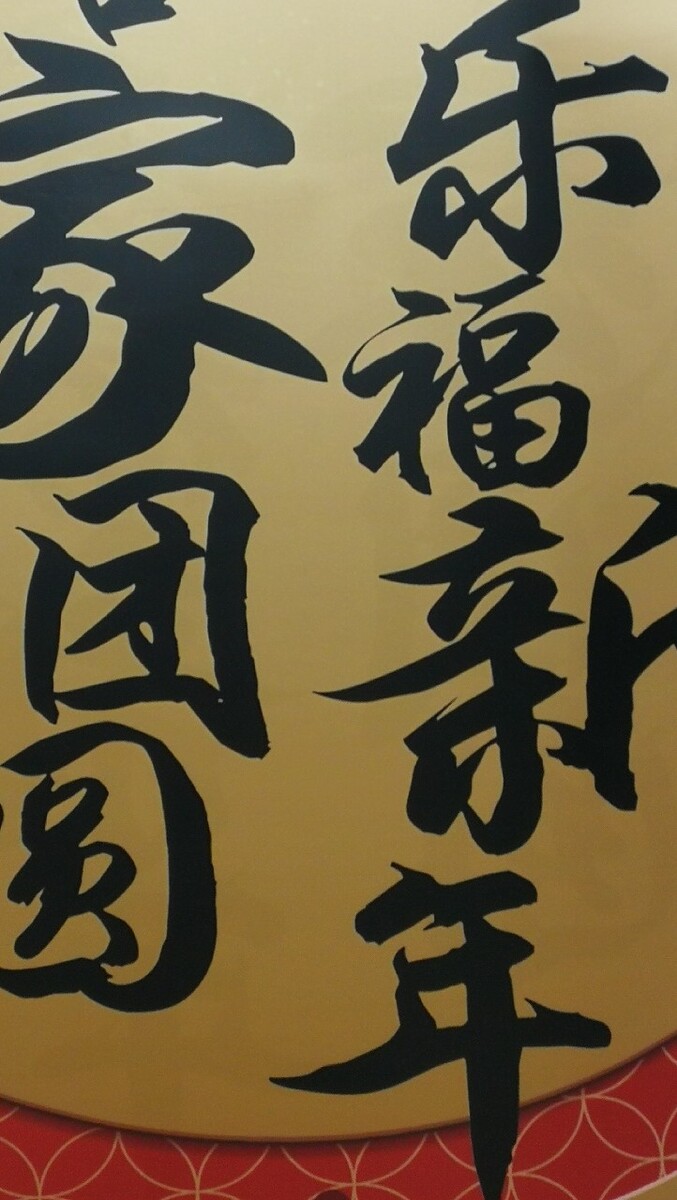 乐福新年
家团圆